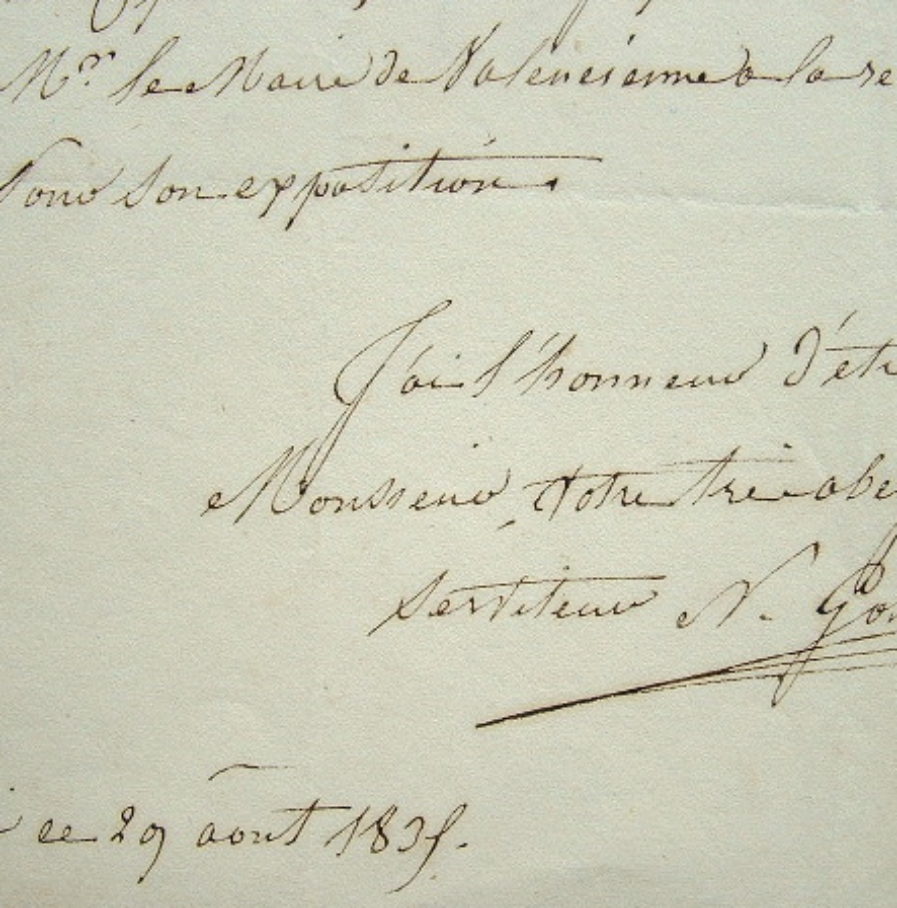 Mr. le Maire de Valencienne a la re
Pour son expposition.
J'ai l'honneur d'êt
Monsieur, votre tré obe
serviteur N. Go
ce 29 août 1835.